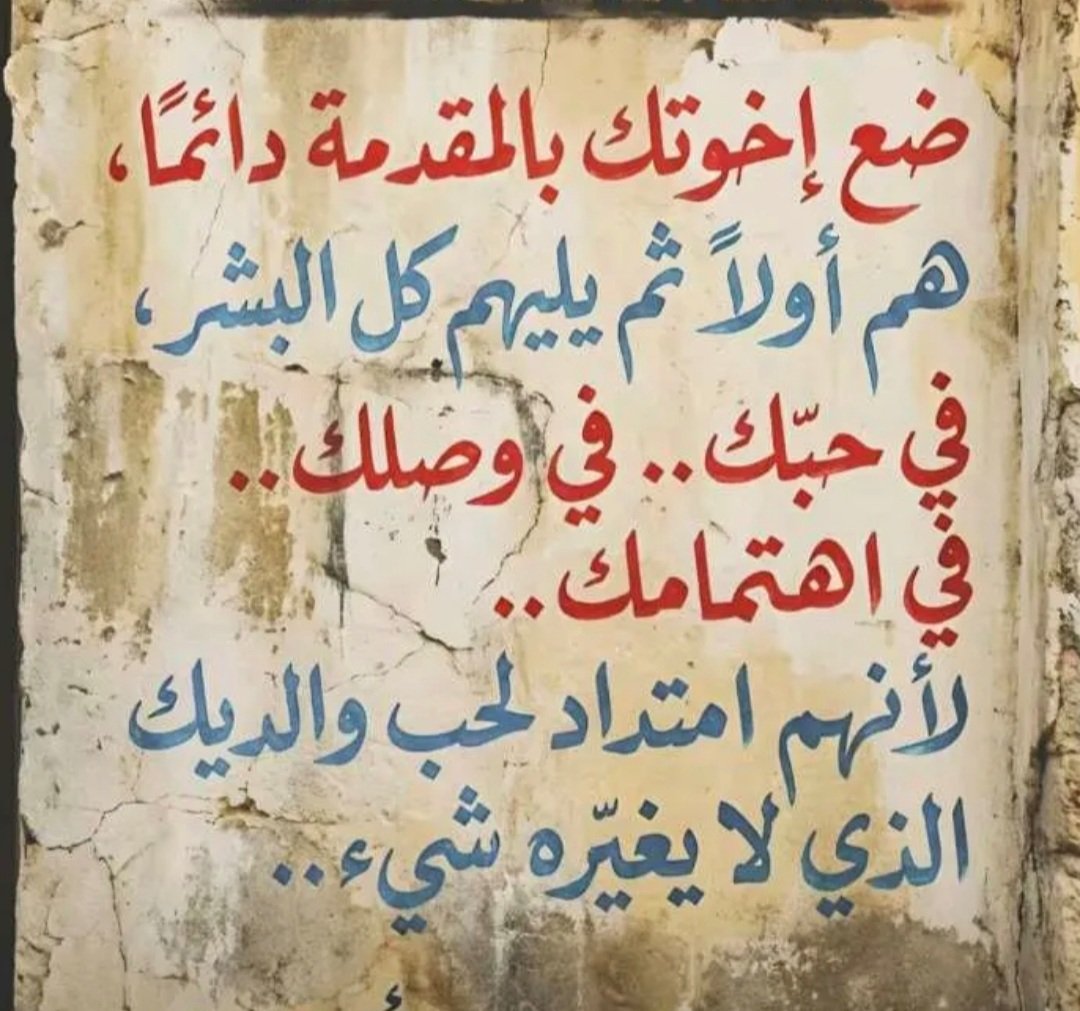 ضع إخوتك بالمقدمة دائمًا،
هم أولاً ثم يليهم كل البشر،
في حبّك.. في وصلك..
في اهتمامك..
لأنهم امتداد لحب والديك
الذي لا يغيّره شيء..